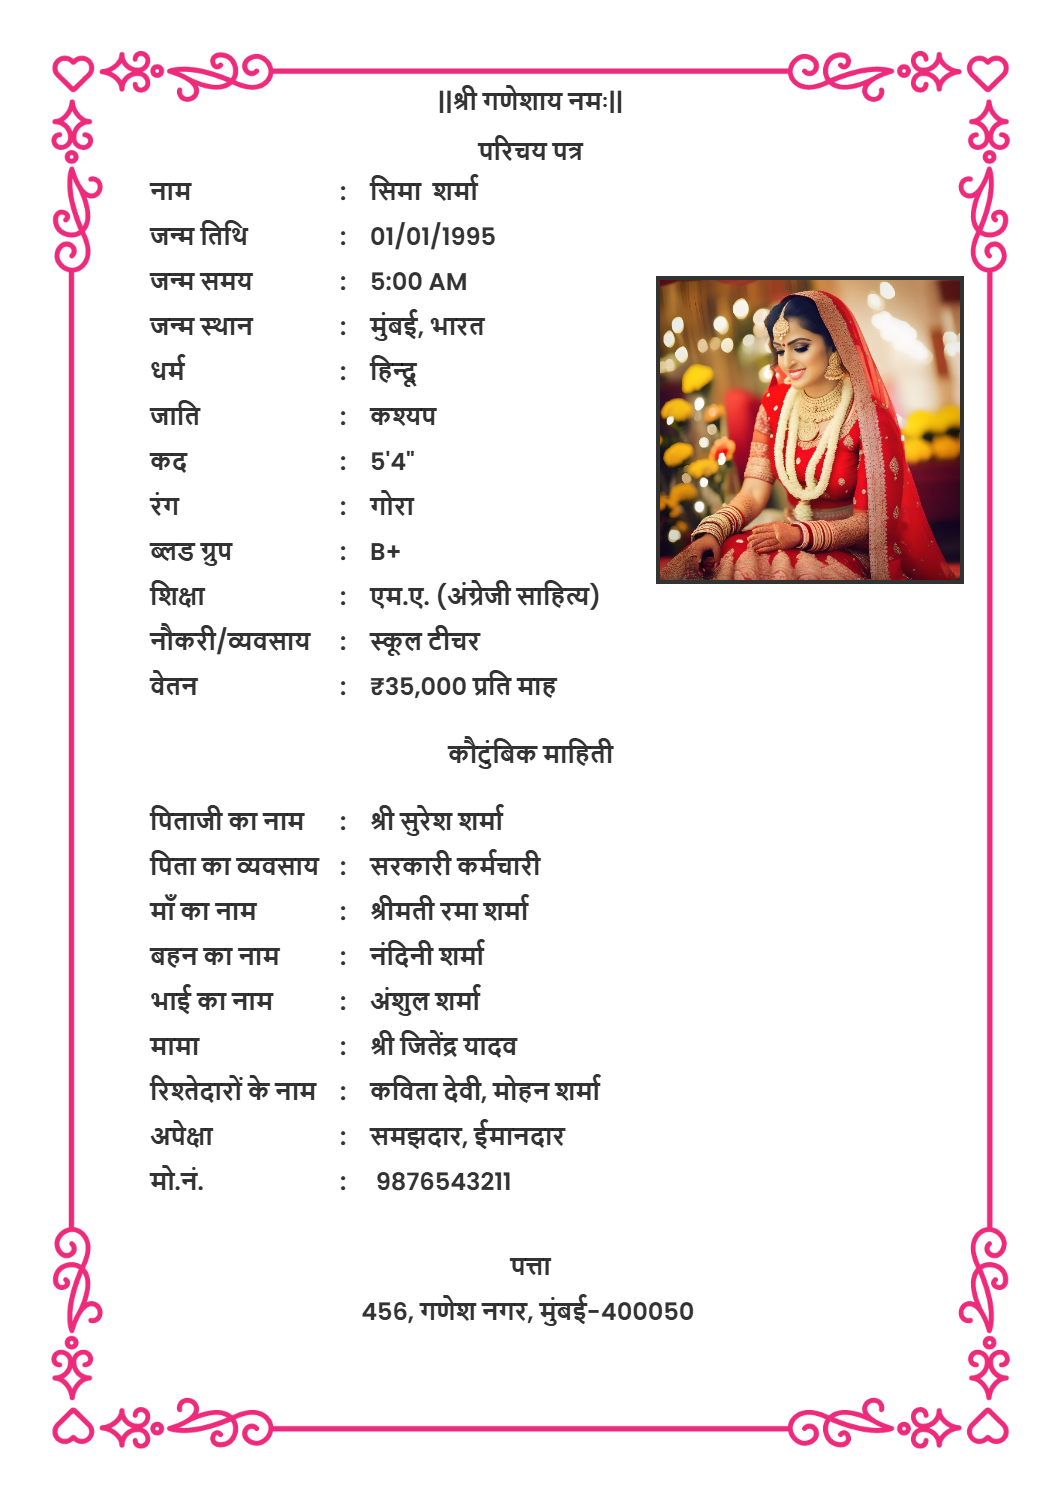 ||श्री गणेशाय नमः||
परिचय पत्र
नाम : सिमा शर्मा
जन्म तिथि : 01/01/1995
जन्म समय : 5:00 AM
जन्म स्थान : मुंबई, भारत
धर्म : हिन्दू
जाति : कश्यप
कद : 5'4"
रंग : गोरा
ब्लड ग्रुप : B+
शिक्षा : एम.ए. (अंग्रेजी साहित्य)
नौकरी/व्यवसाय : स्कूल टीचर
वेतन : ₹35,000 प्रति माह
कौटुंबिक माहिती
पिताजी का नाम : श्री सुरेश शर्मा
पिता का व्यवसाय : सरकारी कर्मचारी
माँ का नाम : श्रीमती रमा शर्मा
बहन का नाम : नंदिनी शर्मा
भाई का नाम : अंशुल शर्मा
मामा : श्री जितेंद्र यादव
रिश्तेदारों के नाम : कविता देवी, मोहन शर्मा
अपेक्षा : समझदार, ईमानदार
मो.नं. : 9876543211
पत्ता
456, गणेश नगर, मुंबई-400050